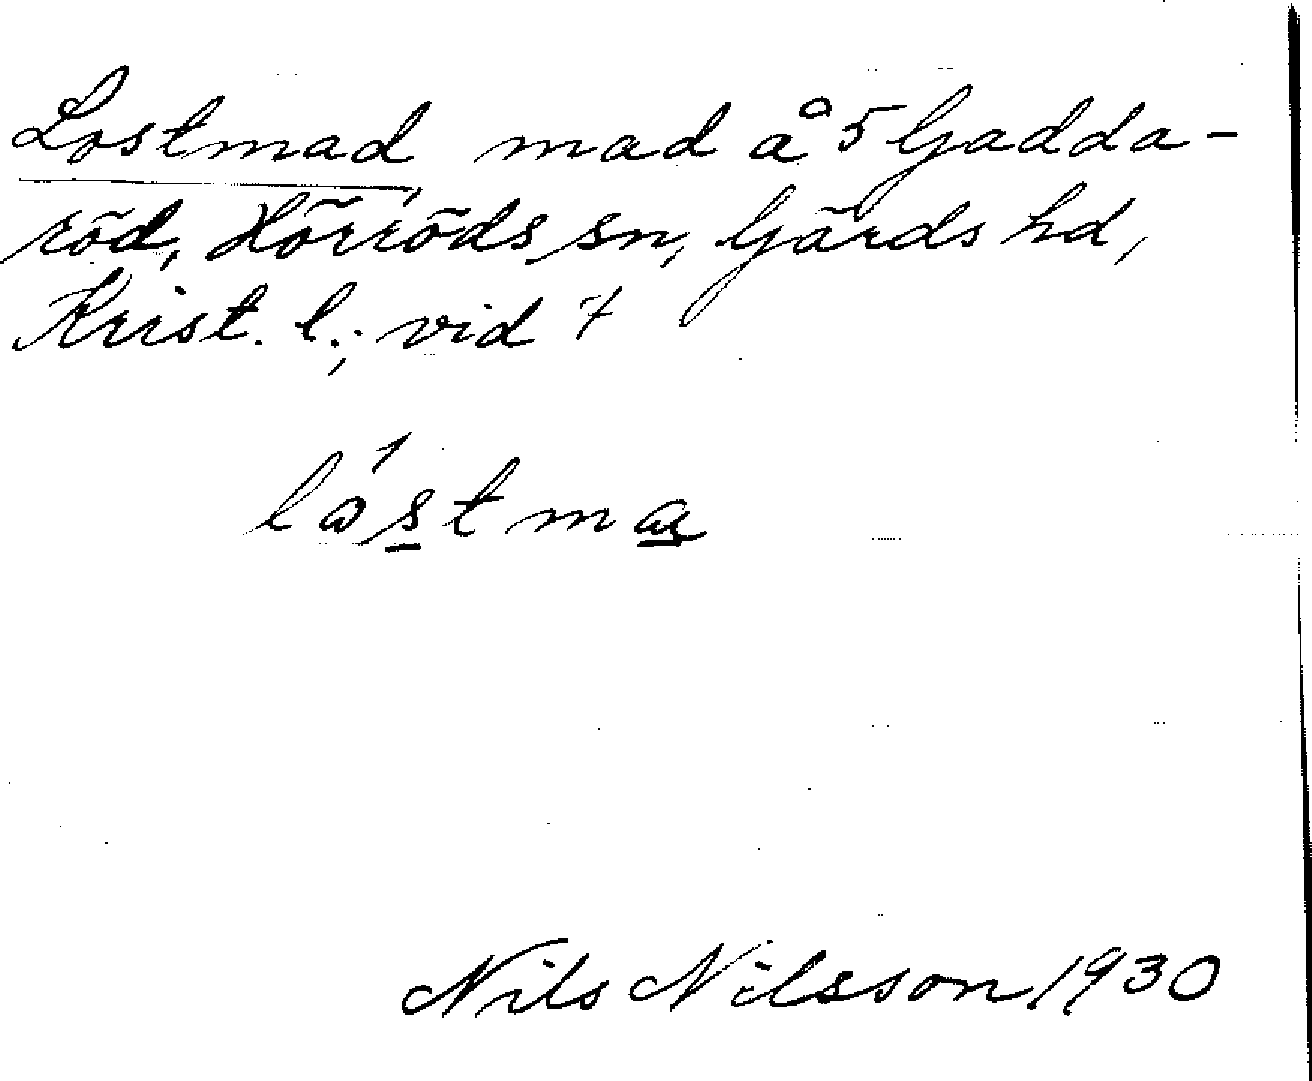 Lostmad, mad å 5 Gadda-
röd, Hörröds sn, Gärds hd,
Krist. l.; vid 7
lóstma
Nils Nilsson 1930